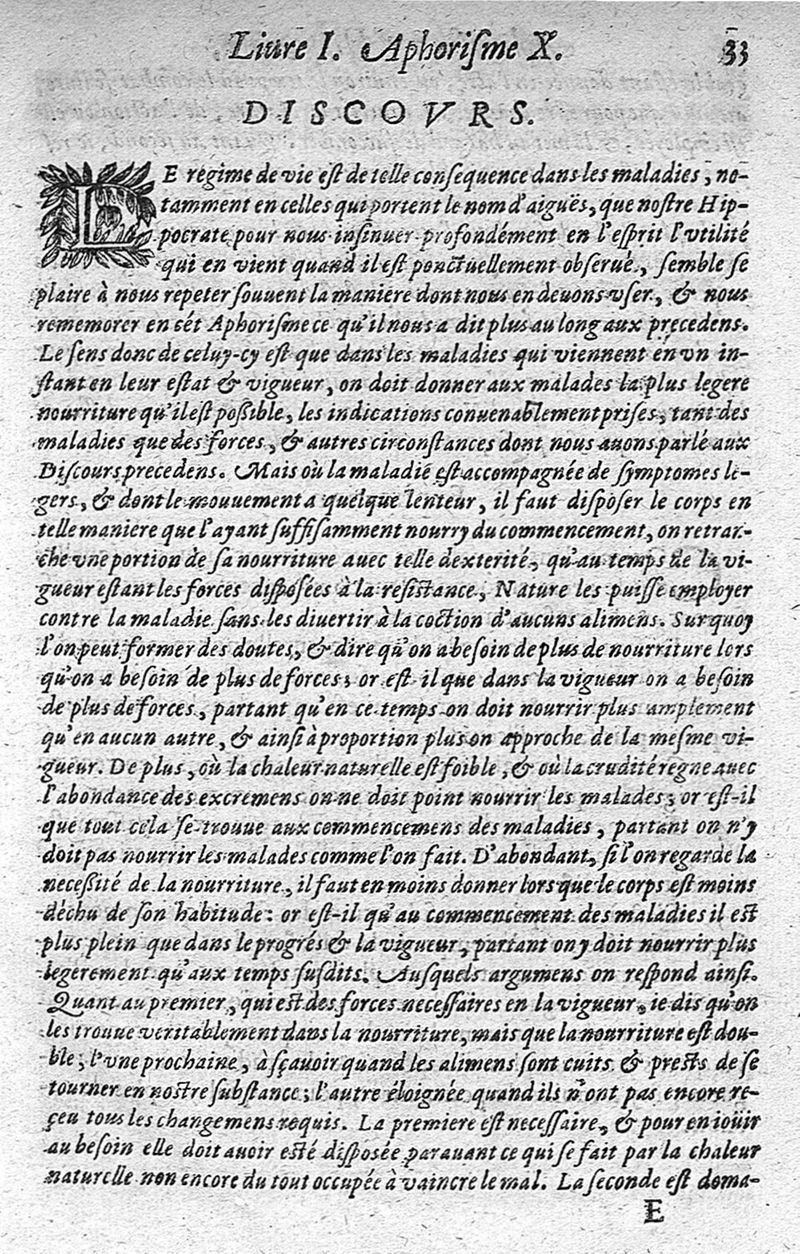 Liure I. Aphoriſme X. 33
DISCOVRS.
LE regime de vie eſt de telle conſequence dans les maladies, no-
tamment en celles qui portent le nom d'aiguës, que noſtre Hip-
pocrate pour nous inſinuer profondément en l'eſprit l'vtilité
qui en vient quand il eſt ponctuellement obſerué, ſemble ſe
plaire à nous repeter ſouuent la maniere dont nous en deuons vſer, & nous
rememorer en cét Aphoriſme ce qu'il nous a dit plus au long aux precedens.
Le ſens donc de celuy-cy eſt que dans les maladies qui viennent en vn in-
ſtant en leur eſtat & vigueur, on doit donner aux malades la plus legere
nourriture qu'il eſt poſſible, les indications conuenablement priſes, tant des
maladies que des forces, & autres circonſtances dont nous auons parlé aux
Diſcours precedens. Mais où la maladié eſt accompagnée de ſymptomes le-
gers, & dont le mouuement a quelque lenteur, il faut diſpoſer le corps en
telle maniere que l'ayant ſuffiſamment nourry du commencement, on retran-
che vne portion de ſa nourriture auec telle dexterité, qu'au temps de la vi-
gueur eſtant les forces diſpoſées à la reſiſtance, Nature les puiſſe employer
contre la maladie ſans les diuertir à la coction d'aucuns alimens. Sur quoy
l'on peut former des doutes, & dire qu'on a beſoin de plus de nourriture lors
qu'on a beſoin de plus de forces; or eſt il que dans la vigueur on a beſoin
de plus de forces, partant qu'en ce temps on doit nourrir plus amplement
qu'en aucun autre, & ainſi à proportion plus on approche de la meſme vi-
gueur. De plus, où la chaleur naturelle eſt foible, & où la crudité regne auec
l'abondance des excremens on ne doit point nourrir les malades; or eſt-il
que tout cela ſe trouue aux commencemens des maladies, partant on n'y
doit pas nourrir les malades comme l'on fait. D'abondant, ſi l'on regarde la
neceſſité de la nourriture, il faut en moins donner lors que le corps eſt moins
déchu de ſon habitude: or eſt-il qu'au commencement des maladies il eſt
plus plein que dans le progrés & la vigueur, partant on y doit nourrir plus
legerement qu'aux temps ſuſdits. Auſquels argumens on reſpond ainſi.
Quant au premier, qui eſt des forces neceſſaires en la vigueur, ie dis qu'on
les trouue veritablement dans la nourriture, mais que la nourriture eſt dou-
ble; l'vne prochaine, à ſçauoir quand les alimens ſont cuits & preſts de ſe
tourner en noſtre ſubſtance; l'autre éloignée quand ils n'ont pas encore re-
çeu tous les changemens requis. La premiere eſt neceſſaire, & pour en ioüir
au beſoin elle doit auoir eſté diſpoſée parauant ce qui ſe fait par la chaleur
naturelle non encore du tout occupée à vaincre le mal. La ſeconde eſt doma-
E